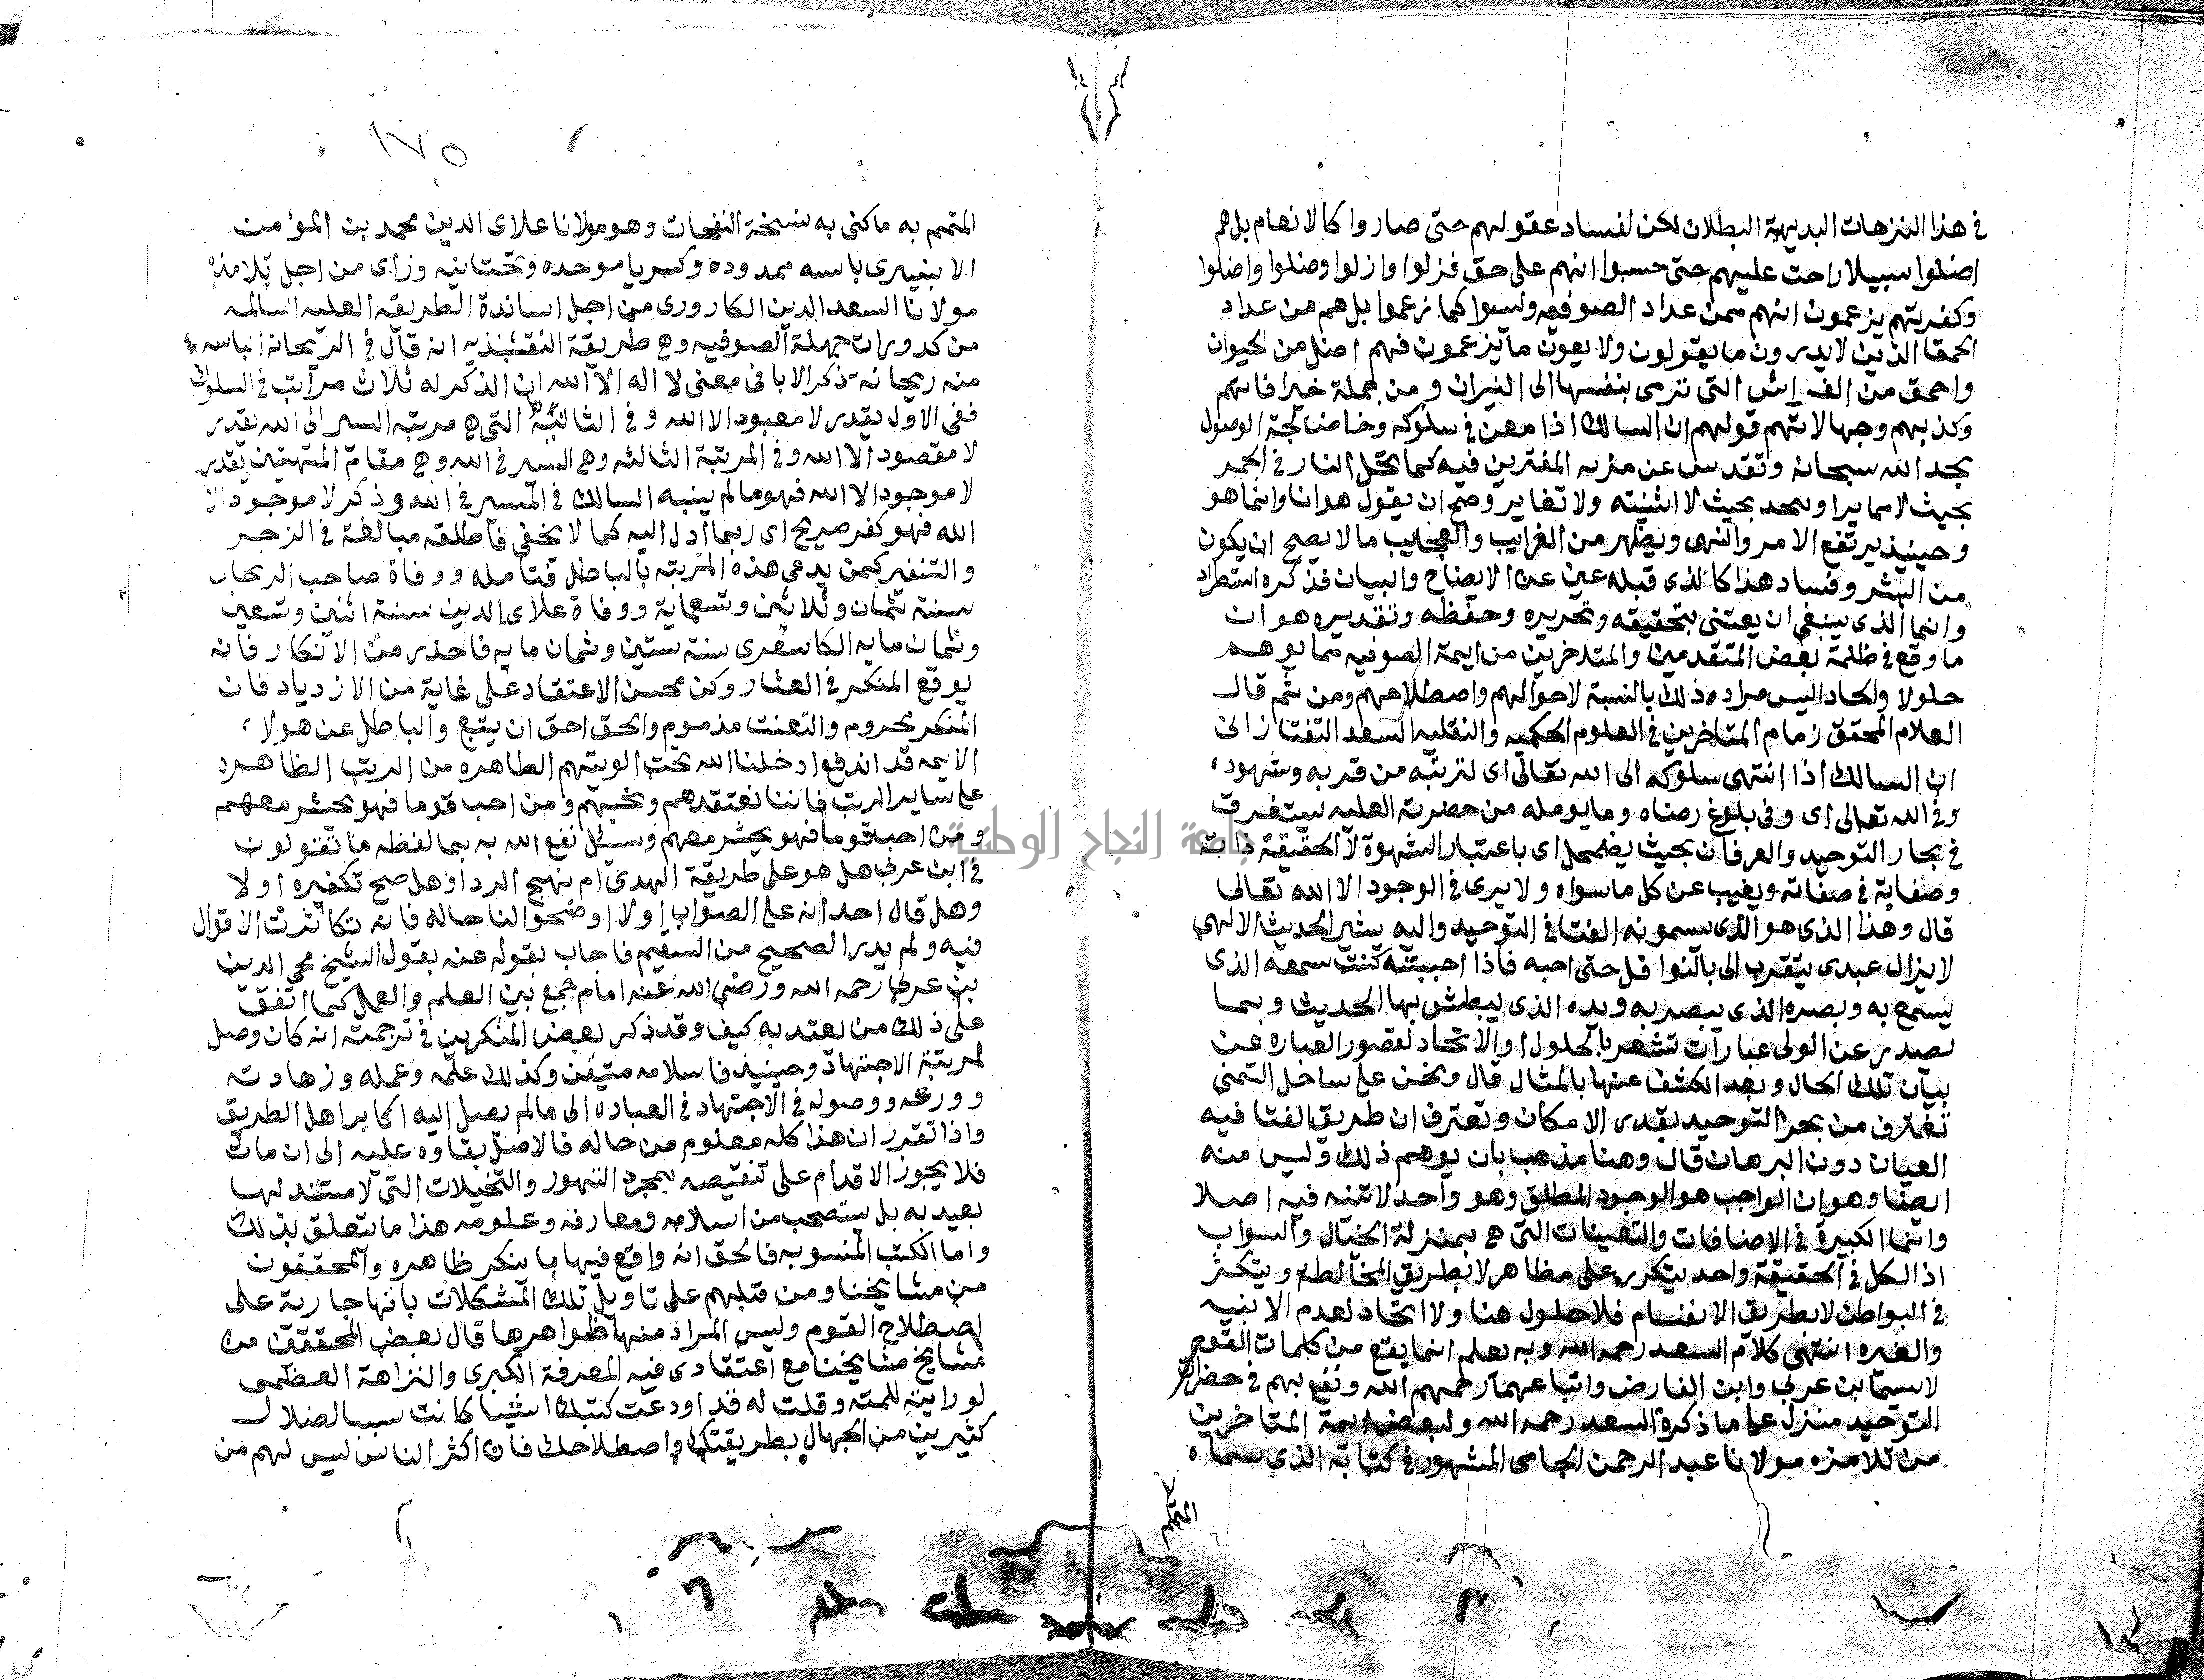 في هذا النزهات البديهية البطلان لكن لفساد عقولهم حتى صاروا كالانعام بل هم
اضلوا سبيلا راحت عليهم حتى حسبوا انهم على حق فزلوا وازلوا وضلوا واضلوا
وكفريتهم يزعمون انهم من عداد الصوفيه وليسوا كما زعموا بل هم من عداد
الحمقا الذين لا يدرون ما يقولون ولا يعون ما يزعمون فهم اضل من الحيوان
واحمق من الفراش التي ترمى بنفسها الى النيران ومن جملة خرافاتهم
وكذبهم وجهالاتهم قولهم ان السالك اذا معن في سلوكه وخاض لجة الوصول
يجد الله سبحانه وتقدس عن مزيه المفترين فيه كما تحل النار في الجمر
بحيث لا تمايز او يتحد بحيث لا اثنينيه ولا تغاير وصح ان يقول هو انا وانا هو
وحينيذ يرتفع الامر والنهى ويظهر من الغرايب والعجايب ما لا يصح ان يكون
من البشر وفساد هذا كالذى قبله عين عن الايضاح والبيان فذكره استطراد
وانما الذى ينبغي ان يعتنى بتحقيقه وتحريره وحفظه وتقديره هو ان
ما وقع في كلمة بعض المتقدمين والمتاخرين من ايمة الصوفيه مما يوهم
حلولا واتحاد اليس مراده ذلك بالنسبة لاحوالهم واصطلاحهم ومن ثم قال
العلام المحقق زمام المتاخرين في العلوم الحكميه والنقليه السعد التفتازانى
ان السالك اذا انتهى سلوكه الى الله تعالى اى لمرتبة من قربه وشهوده
وفي الله تعالى اى وفى بلوغ رضاه وما يومله من حضرته العليه يستغرق
في بحار التوحيد والعرفان بحيث يضمحل اى باعتبار الشهوة لا الحقيقة ذاته
وصفاته في صفاته ويغيب عن كل ما سواه ولا يرى في الوجود الا الله تعالى
قال وهذا الذى هو الذى يسمونه الفنا في التوحيد واليه يشير الحديث الالهى
لا يزال عبدى يتقرب الى بالنوافل حتى احبه فاذا احببته كنت سمعه الذى
يسمع به وبصره الذى يبصر به ويده الذى يبطش بها الحديث وبما
يصدر عن الولى عبارات تشعر بالحلول او الاتحاد لقصور العباره عن
بيان تلك الحال وبعد الكشف عنها بالمثال قال ونحن على ساحل التمنى
نغترف من بحر التوحيد بقدر الامكان ونعترف ان طريق الفنا فيه
العيان دون البرهان قال وهنا مذهب بان يوهم ذلك وليس منه
ايضا وهو ان الواجب هو الوجود المطلق وهو واحد لا تثنه فيه اصلا
وانما الكبيرة في الاضافات والتعينات التى هي بمنزلة الخيال والسراب
اذ الكل في الحقيقة واحد يتكرر على مظاهر لا بطريق المخالطه ويتكثر
في البواطن لا بطريق الانقسام فلا حلول هنا ولا اتحاد لعدم الاثنيه
والغيره انتهى كلام السعد رحمه الله وبه يعلم انما يقع من كلمات القوم
لا سيما بن عربي وابن الفارض واتباعهما رحمهم الله ونفع بهم في حضرات
التوحيد منزل على ما ذكره السعد رحمه الله ولبعض ايمة المتاخرين
من تلامذه مولانا عبد الرحمن الجامى المشهور في كتابه الذى سماه
المتمم
١٧٥
المتمم به ما كنى به نسخة النفحات وهو مولانا علاى الدين محمد بن المؤمن
الابنيرى بابسه ممدوده وكسر يا موحده وتحتانيه وزاى من اجل تلامذه
مولانا السعد الدين الكاروري من اجل اساندة الطريقه العليه السالمه
من كدورات جهلة الصوفيه وهي طريقة النقشبنذيه انه قال في الريحانه الباسه
منه ريحانة ذكر الابا في معنى لا اله الا الله ان الذكر له ثلاث مراتب في السلوك
ففي الاول يقدر لا معبود الا الله وفي الثالثة التى هي مرتبه السير الى الله يقدر
لا مقصود الا الله وفي المرتبة الثالثه وهي السير في الله وهي مقام المنتهيين يقدر
لا موجود الا الله فهو ما لم ينبه السالك في المسير في الله وذكر لا موجود الا
الله فهو كفر صريح اى ربما ادل اليه كما لا يخفي فاطلقه مبالغة في الزجر
والتنفير كمن يدعي هذه المرتبه بالباطل فتامله ووفاة صاحب الريحان
سنة ثمان وثلاثين وتسعماية ووفاة علاى الدين سنة اثنين وتسعين
وثمان مايه الكاسغرى سنة ستين وثمان مايه فاحذر من الانكار فانه
يوقع المنكر في العثار وكن محسن الاعتقاد على غاية من الازدياد فان
المنكر محروم والتعنت مذموم والحق احق ان يتبع والباطل عن هولاء
الايمه قد اندفع ادخلنا الله تحت الويتهم الطاهره من الريب الظاهره
على ساير الرتب فاننا نعتقدهم ونحبهم ومن احب قوما فهو يحشر معهم
ومن احب قوما فهو يحشر معهم وسئل نفع الله به بما لفظه ما تقولون
في ابن عربي هل هو على طريقة الهدى ام نهج الردا وهل صح تكفيره او لا
وهل قال احد انه على الصواب او لا اوضحوا لنا حاله فانه تكاثرت الاقوال
فيه ولم يدر الصحيح من السقيم فاجاب بقوله عنه بقول الشيخ محي الدين
بن عربي رحمه الله ورضي الله عنه امام جمع بين العلم والعمل كما اتفق
على ذلك من يعتد به كيف وقد ذكر بعض المنكرين في ترجمته انه كان وصل
لمرتبة الاجتهاد وحينيذ فاسلامه متيقن وكذلك علمه وعمله وزهادته
وورعه ووصوله في الاجتهاد في العباده الى ما لم يصل اليه اكابر اهل الطريق
واذا تقرر ان هذا كله معلوم من حاله فالاصل بقاوه عليه الى ان مات
فلا يجوز الاقدام على تنقيصه بمجرد التهور والتخيلات التى لا مستند لها
يعيد به بل يستصحب من اسلامه ومعارفه وعلومه هذا ما يتعلق بذلك
واما الكتب المنسوبه فالحق انه واقع فيها ما ينكر ظاهره والمحققون
من مشايخنا ومن قبلهم على تاويل تلك المشكلات بانها جارية على
اصطلاح القوم وليس المراد منها ظواهرها قال بعض المحققين من
مشايخ مشايخنا مع اعتقادى فيه المعرفة الكبرى والنزاهة العظمى
لو رايته للمته وقلت له قد اودعت كتبك اشيا كانت سببا لضلال
كثيرين من الجهال بطريقتك واصطلاحك فان اكثر الناس ليس لهم من
جامعة النجاح الوطنية